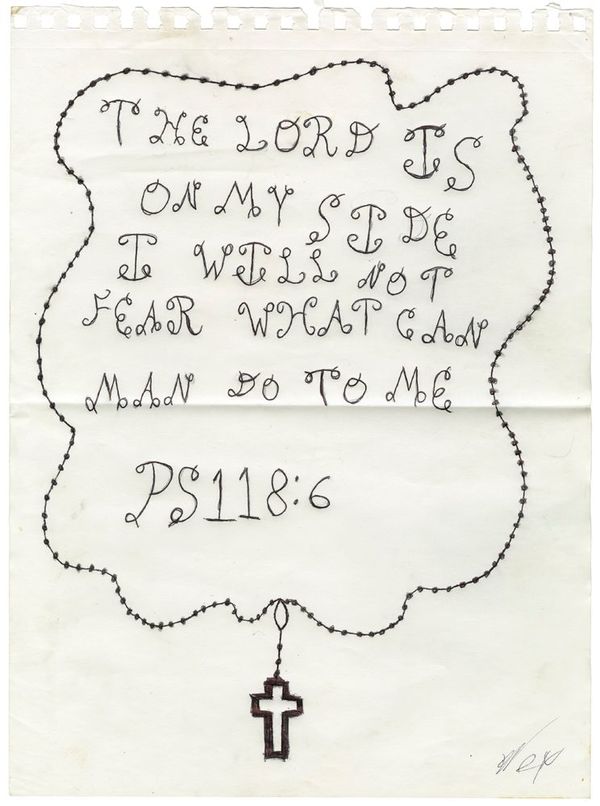 THE LORD IS
ON MY SIDE
I WILL NOT
FEAR WHAT CAN
MAN DO TO ME
PS118:6